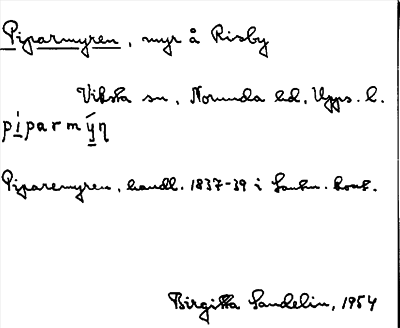 Piparmyren, myr å Risby
Viksta sn, Norunda hd, Upps. l.
pi̱parmy̱ŋ
Piparemyren, handl. 1837-39 i Lantm. kont.
Birgitta Sandelin, 1954